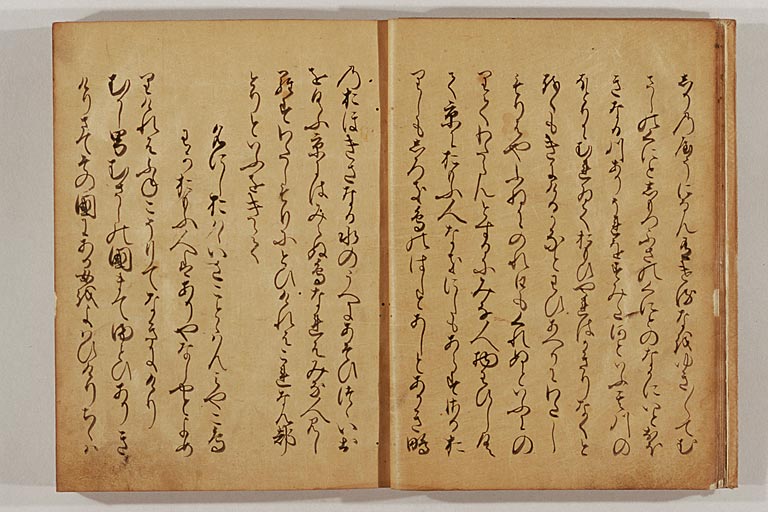 しりのやうになんありけるなをゆき〳〵てむ
さしのくにとしもつふさのくにとのなかにいとおほ
きなる川ありそれをすみた河といふその川の
ほとりにむれゐておもひやれはかきりなくと
をくもきにけるかなとわひあへるにわたし
もりはやふねにのれ日もくれぬといふにの
りてわたらんとするにみな人物わひしく
て京におもふ人なきにしもあらすさるお
りしもしろき鳥のはしとあしとあかき鴫
乃おほきさなる水のうへにあそひつゝいお
をくふ京にはみえぬ鳥なれはみな人見し
らすわたしもりにとひけれはこれなん都
とりといふをきゝて
名にしおはゝいさことゝはんみやこ鳥
わかおもふ人はありやなしやとよめ
りけれはふねこそりてなきにけり
むかし男むさしの國まてまとひありき
けりさてその國にある女をよはひけりちゝハ